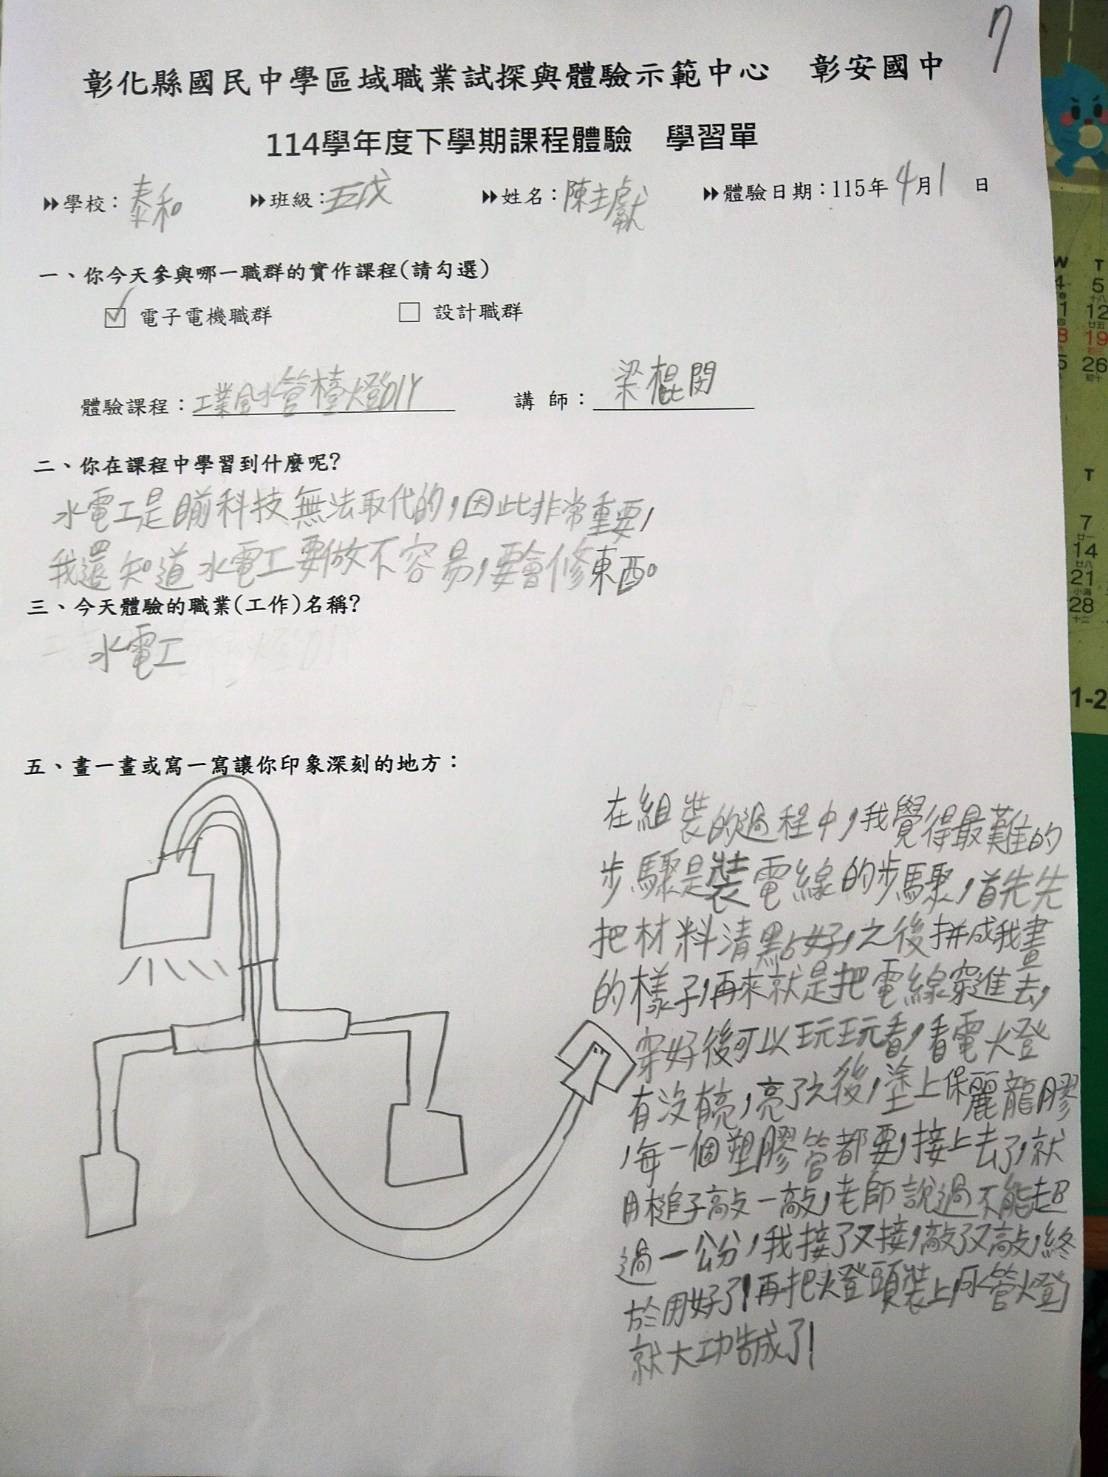 7
彰化縣國民中學區域職業試探與體驗示範中心 彰安國中
114學年度下學期課程體驗 學習單
學校：泰和 班級：五戊 姓名：陳主獻 體驗日期：115年4月1日
一、你今天參與哪一職群的實作課程(請勾選)
☑ 電子電機職群 □ 設計職群
體驗課程：工業風水管檯燈DIY 講 師：梁棍閔
二、你在課程中學習到什麼呢？
水電工是目前科技無法取代的，因此非常重要，
我還知道水電工要做不容易，要會修東西。
三、今天體驗的職業(工作)名稱？
水電工
五、畫一畫或寫一寫讓你印象深刻的地方：
在組裝的過程中，我覺得最難的
步驟是裝電線的步驟，首先先
把材料清點好，之後拼成我畫
的樣子，再來就是把電線穿進去，
穿好後可以玩玩看，看電火登
有沒有亮，亮了之後，塗上保麗龍膠
，每一個塑膠管都要，接上去了，就
用槌子敲一敲，老師說過不能超
過一公分，我接了又接，敲了又敲，終
於用好了！再把燈頭裝上，水管燈
就大功告成了！
W T
5
12
19
26
T
7
14
21
28
1-2